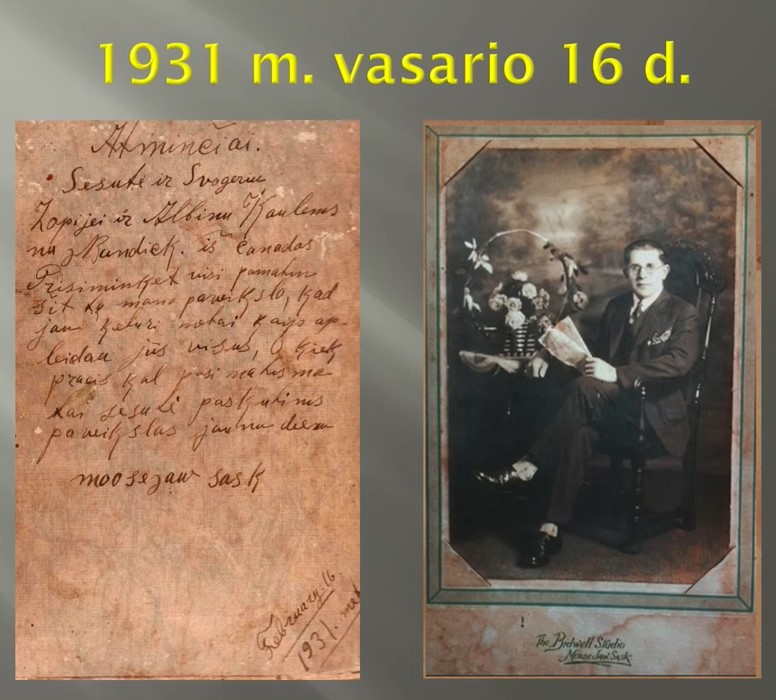 1931 m. vasario 16 d.
Atminčiai.
Sesutė ir Svogeriu
Zopijei ir Albinu Kaulems
nu iš Canados
Prisiminket visi pamatiu
šit tą mano paveikslo, kad
jau keturi metai kaip ap-
leidau jūs visus, o kiek
praeis kol pasimatisma
tai sesutė paskutinis
paveikslas jaunu dienu
moosejaw sask
February 16
1931. met
The Bidwell Studio
Moose Jaw Sask